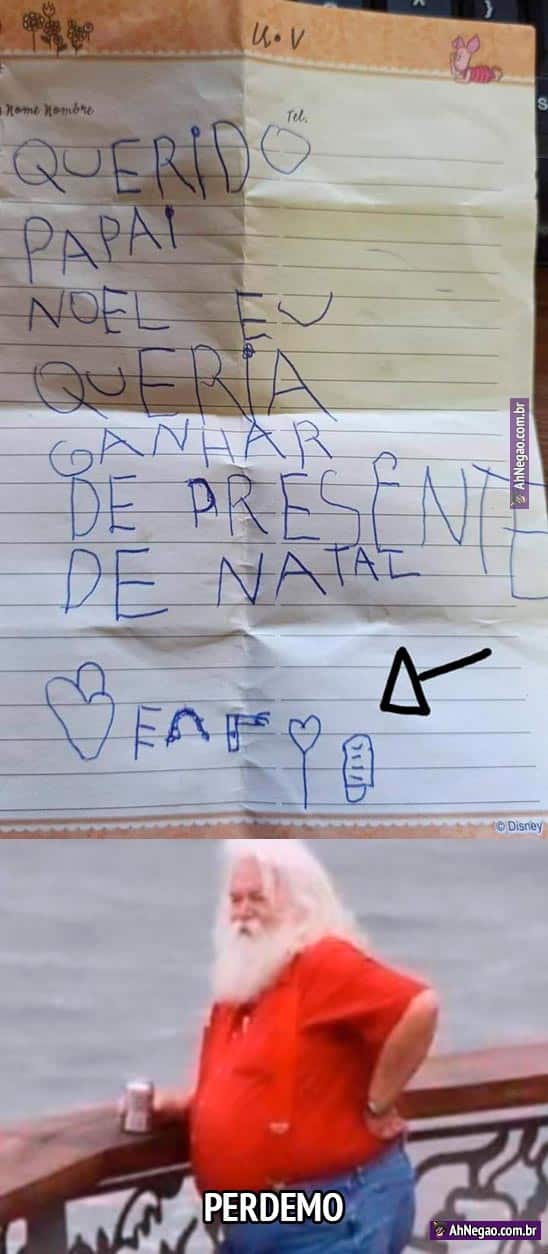 Nome Nombre Tel.
QUERIDO
PAPAI
NOEL EU
QUERIA
GANHAR
AhNegao.com.br
DE PRESENTE
DE NATAL
© Disney
PERDEMO
AhNegao.com.br